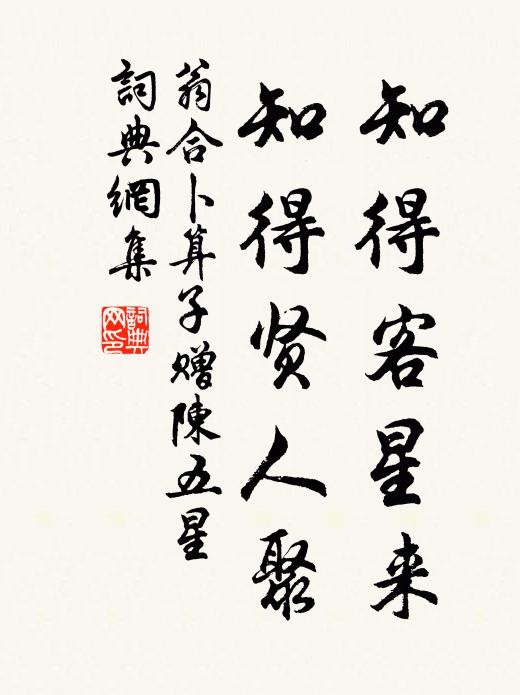 知得客星来
知得贤人聚
翁合卜算子赠陳五星
詞典網集
詞典网印